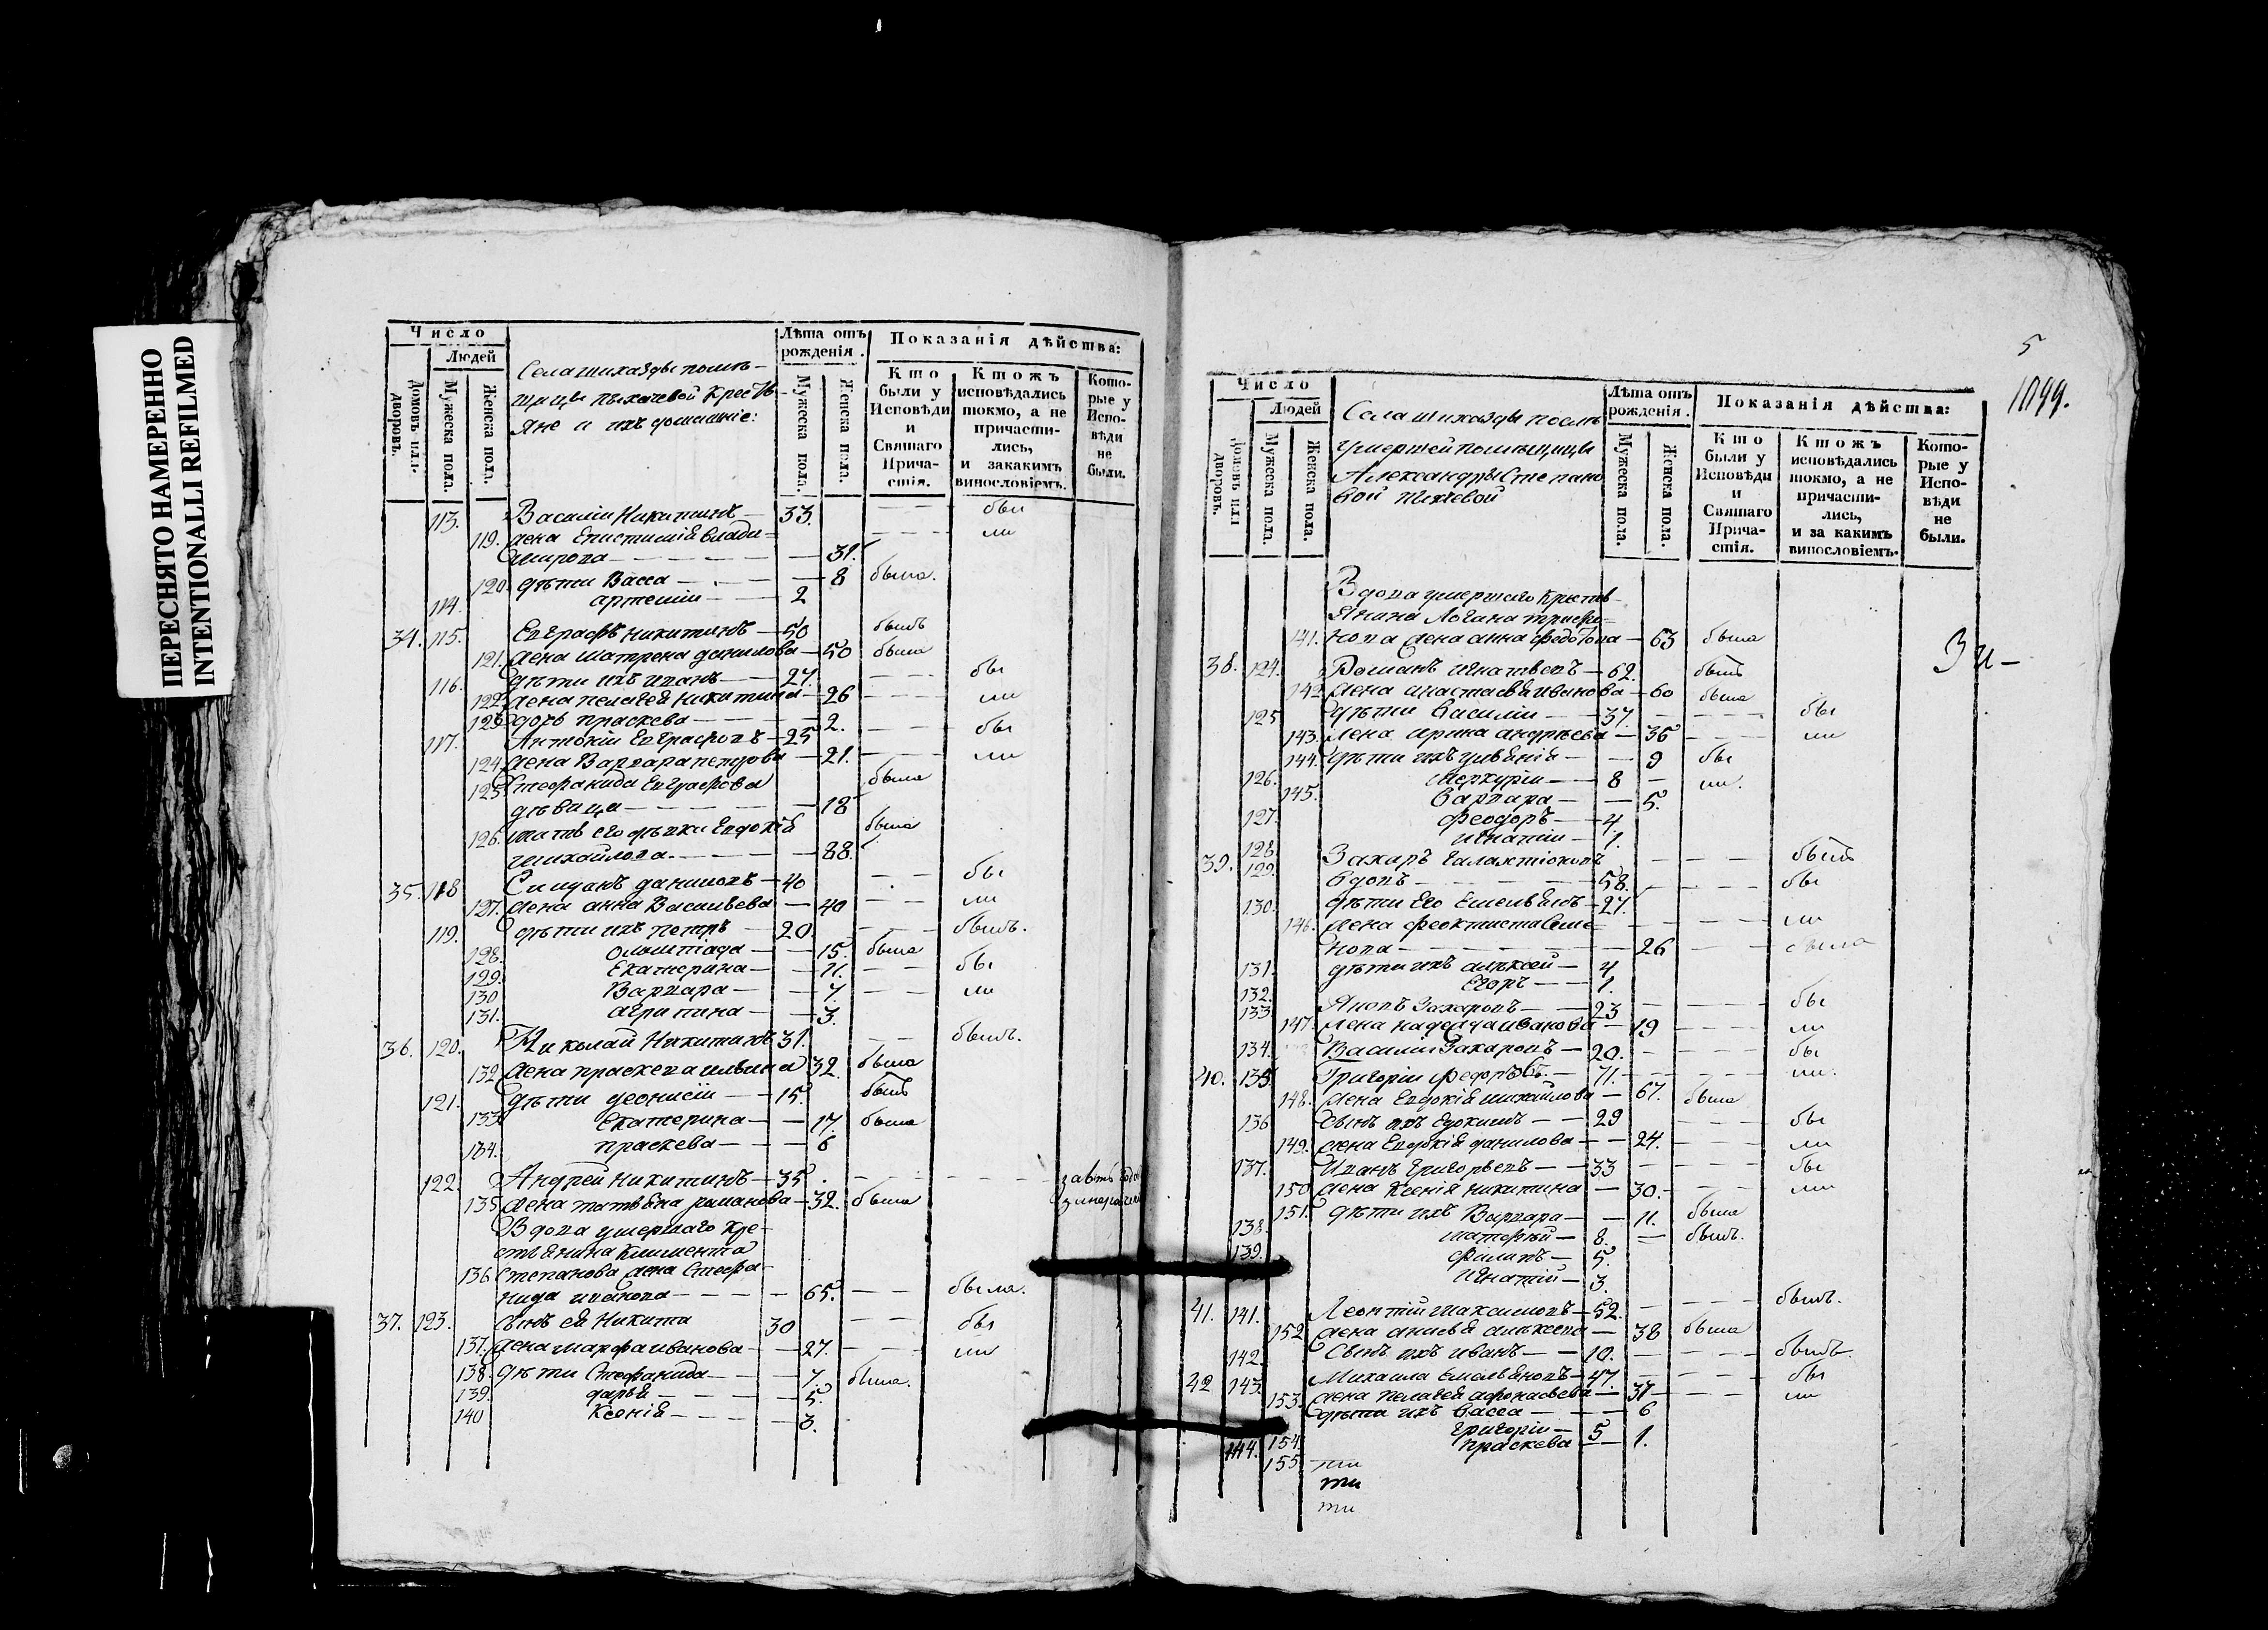 ПЕРЕСНЯТО НАМЕРЕННО
INTENTIONALLI REFILMED
Число
Людей
Домовъ или дворовъ.
Мужеска пола.
Женска пола.
Села шихазды помѣ-
щицы крестья-
яне и ихъ домашніе:
Лѣта отъ рожденія.
Мужеска пола.
Женска пола.
Показанія дѣйства:
Кто были у Исповѣди и Святаго Причастія.
Ктожъ исповѣдались токмо, а не причастились, и закакимъ винословіемъ.
Которые у Исповѣди не были.
113. Василіи Никитинъ — 33. — — бы
119. жена Епистимія Влади=
мирова — — 31. — — ли
120. дѣти Васса — — 8 была.
114. артеміи — 2
34. 115. Евграфъ никитинъ — 50 былъ
121. жена матрена данилова — 50 была
116. дѣти ихъ иванъ — 27. — — бы
122. жена пелагея никитина — 26 — — ли
123. дочь праскева — — 2.
117. Антоніи Евграфовъ — 25 — — бы
124. жена Варвара петрова — 21. — — ли
125. Стефанида Евграфова была
дѣвица — — 18
126. мать его Евдокія была
михайлова. — — 88.
35. 118 даниловъ — 40 — — бы
127. жена анна Васильева — 40 — — ли
119. дѣти ихъ петръ — 20. — — былъ.
128. Олимпіада — — 15. была
129. Екатерина — — 11. — — бы
130 Варвара — — 7. — — ли
131. агрипина — — 3.
36. 120. Николай Никитинъ 31. — — былъ.
132 жена праскева ильина 32. была
121. дѣти деонисіи — 15. былъ
133 Екатерина — — 17. была
134. праскева — — 6
122. Андрей Никитинъ — 35 — —
135 жена татьяна романова — 32. была
Вдова умершаго кре-
стьянина Климента
136 Степанова жена Стефа-
нида иванова — — 65. — — была.
37. 123. сынъ ея Никита 30 — — бы
137. жена марфа иванова — 27. — — ли
138. дѣти Стефанида — — 7. была.
139. дарья — — 5.
140 Ксенія — — 3.
5
1099.
Число
Людей
Домовъ или дворовъ.
Мужеска пола.
Женска пола.
Села шихазды помѣ
умершей помѣщицы
Александры Степано
вой
Лѣта отъ рожденія.
Мужеска пола.
Женска пола.
Показанія дѣйства:
Кто были у Исповѣди и Святаго Причастія.
Ктожъ исповѣдались токмо, а не причастились, и за какимъ винословіемъ.
Которые у Исповѣди не были.
Вдова умершаго крестья-
янина Логина трифо=
141. нова жена анна федотова — 63 была
38. 124. Романъ игнатьевъ — 62. былъ
142. жена анастасія иванова — 60 была
125 дѣти василіи — 37. — — бы
143. жена арина андреева — 36 — — ли
144. дѣти ихъ уліянія — — 9 бы
126. меркуріи — 8 — ли.
145. варвара — — 5.
127. феодоръ — 4.
128 игнатіи — 1.
39. 129. Захаръ Галактіоновъ — — былъ
вдовъ — 58. — — бы
130. дѣти его Емельянъ — 27.
146. жена феоктиста Семе — — ли
нова — — 26 — — была
131. дѣти ихъ алексѣй — 4
132. Егоръ — 1.
133 Захаровъ — 23 — — бы
147. жена надежда иванова — 19 — — ли
134. Василіи Захаровъ — 20. — — бы
40. 135. Григоріи федоровъ. — 71. — — ли.
148. жена Евдокія михайлова — 67. была
136 сынъ ихъ Евдокимъ — 29 — — бы
149. жена Евдокія данилова — 24. — — ли
137. Иванъ григорьевъ — 33 — — бы
150 жена Ксенія никитина — 30. — — ли
151. дѣти ихъ Варвара — — 11. была
138. матфѣй — 8. — былъ.
139. филипъ — 5.
игнатій — 3.
41. 141. Леонтій максимовъ — 52. — — былъ.
152 жена анисья алексева — 38 была
142. Сынъ ихъ иванъ — 10. — — былъ.
42 143. Михаила емельяновъ — 47. — — бы
153. жена пелагея афонасьева — 37 — — ли
дѣти ихъ васса — — 6
154. григоріи — 5
144. 155. праскева — 1.